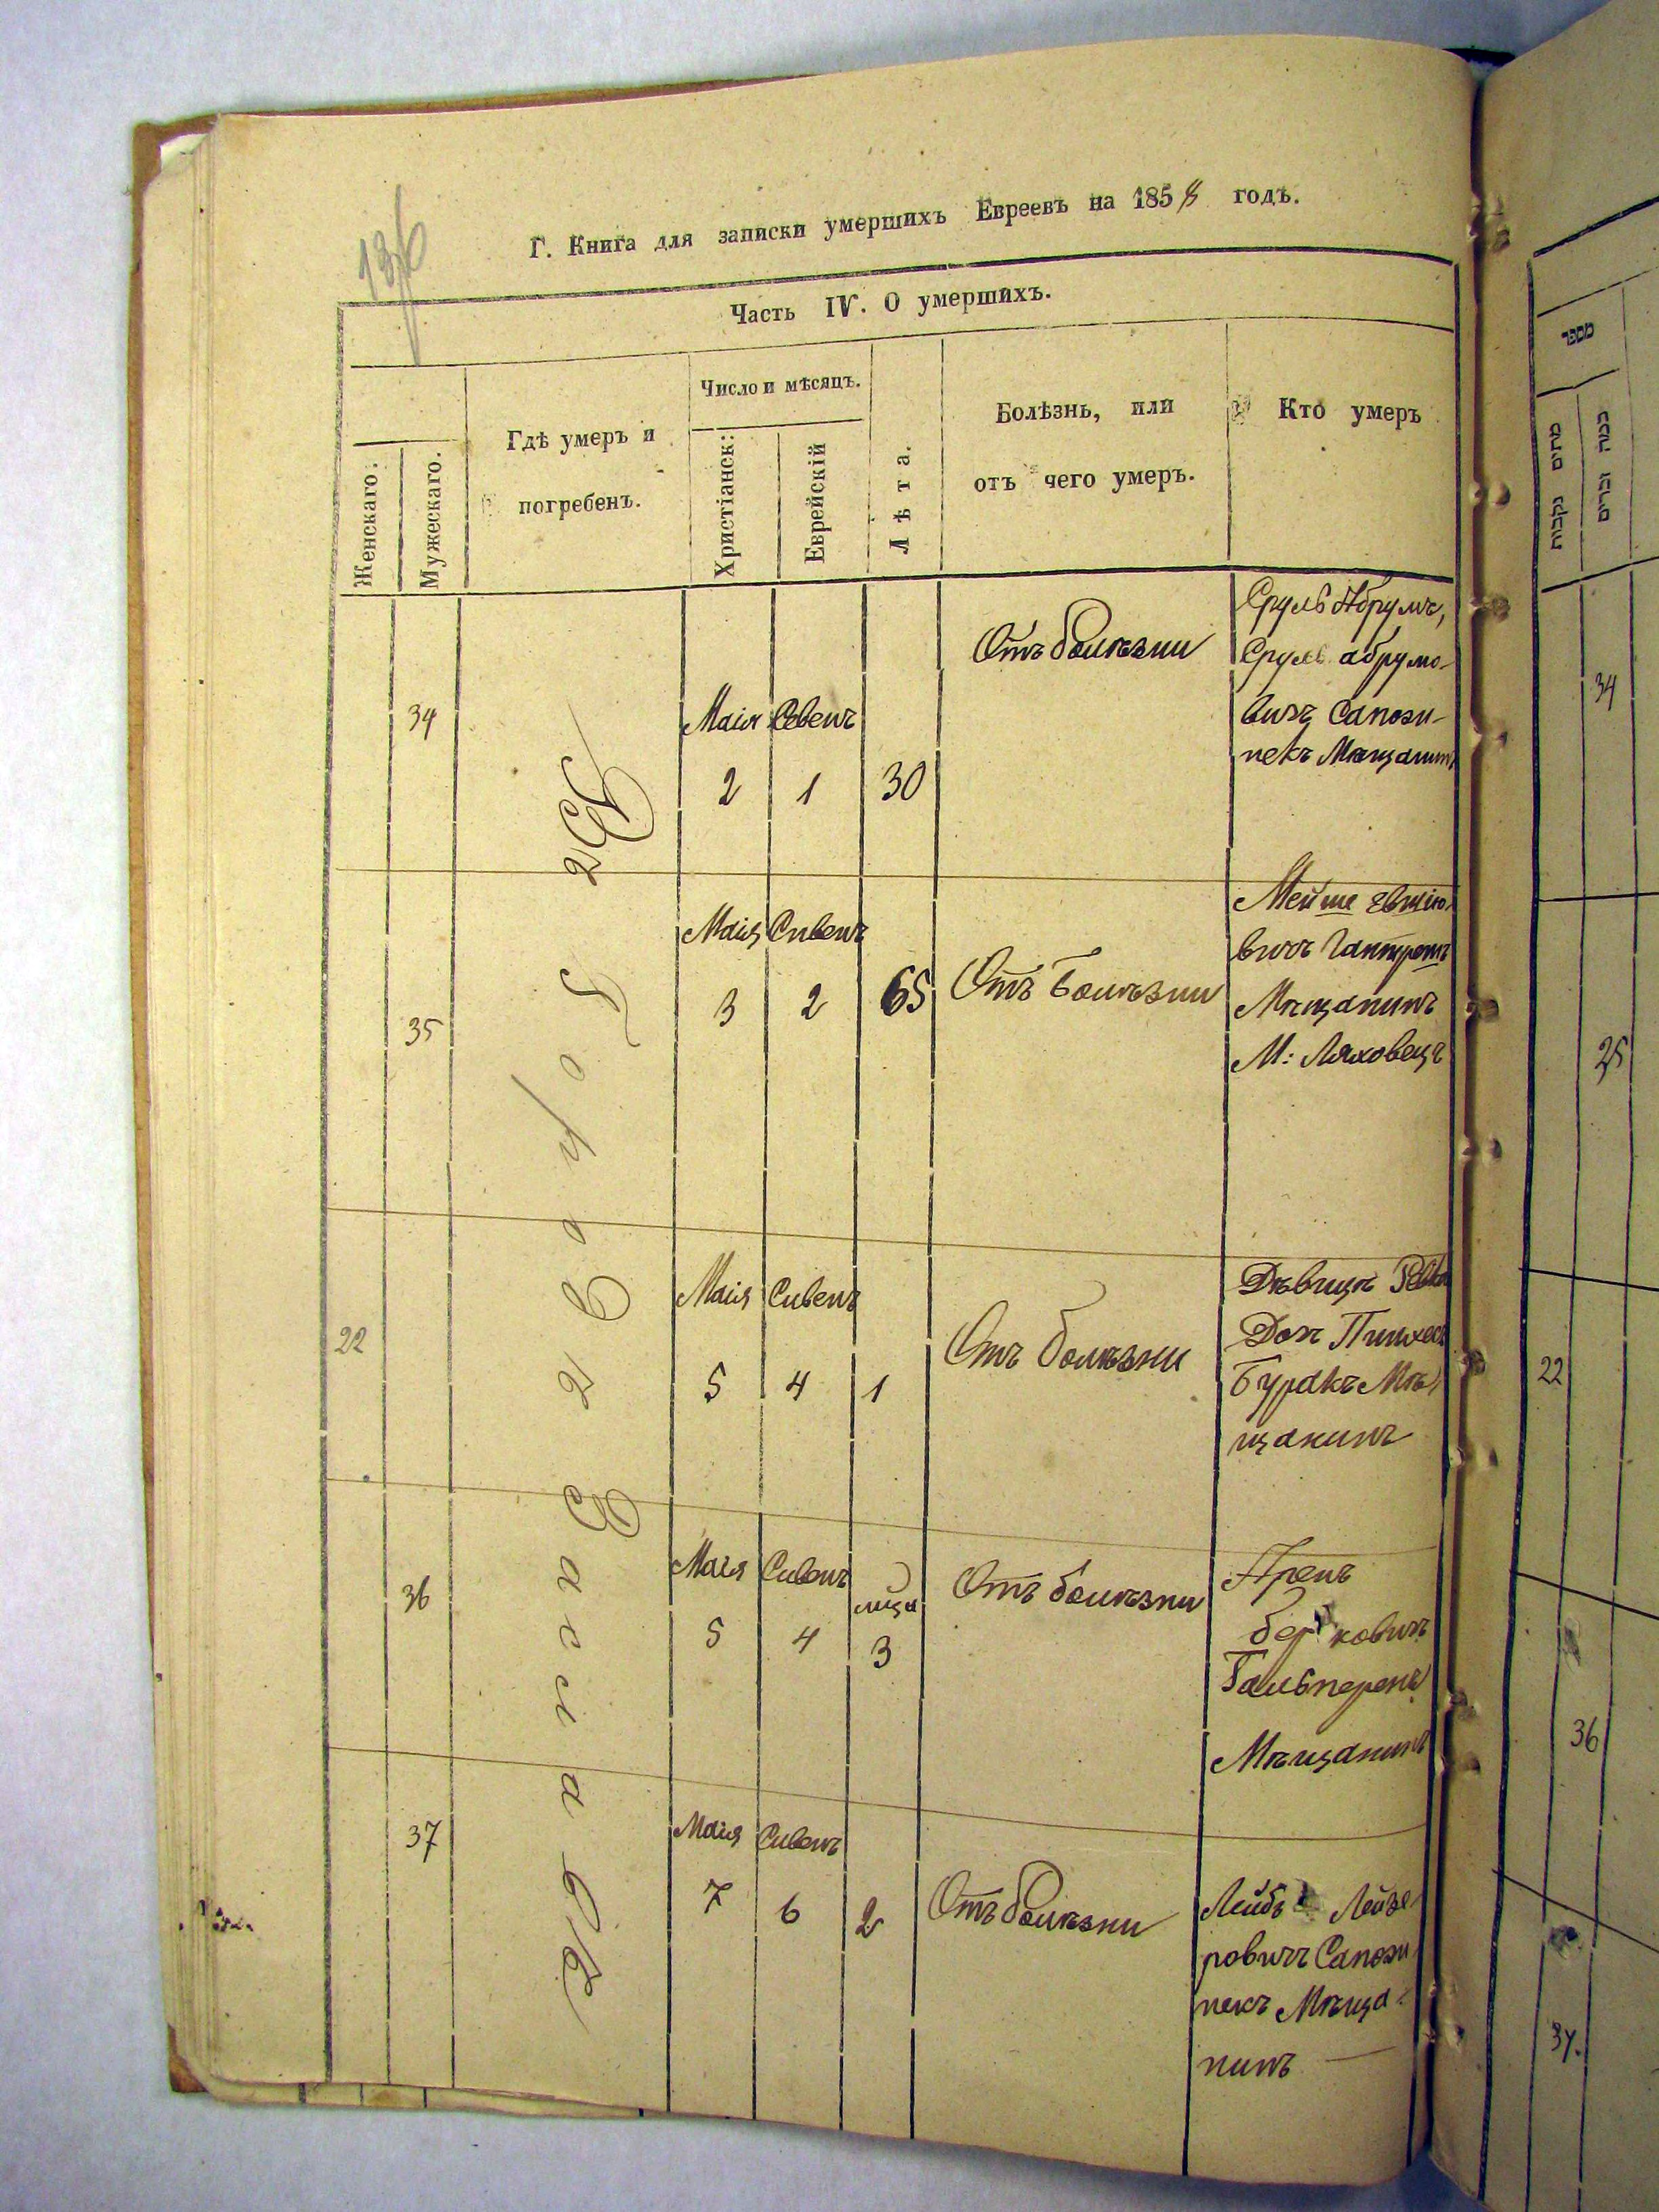 136
Г. Книга для записки умершихъ Евреевъ на 1858 годъ.
Часть IV. О умершихъ.
Женскаго.
Мужескаго.
Гдѣ умеръ и
погребенъ.
Число и мѣсяцъ.
Христіанск:
Еврейскій
Лѣта.
Болѣзнь, или
отъ чего умеръ.
Кто умеръ
34
Маія Севенъ
2 1 30
Отъ болѣзни
Сруль Абрумъ,
Сруль абрумо-
вичъ Сапожн-
пекъ Мѣщанинъ
35
Маія Сивенъ
3 2 65
Отъ Болѣзни
Мейше
вичъ
Мѣщанинъ
М: Ляховецъ
22
Маія Сивенъ
5 4 1
Отъ болѣзни
Дѣвица
Дочь Пинхеса
Буракъ Мѣ-
щанинъ
36
Маія Сивенъ
мѣца
5 4 3
Отъ болѣзни
Арень
Берковичъ
Гальперенъ
Мѣщанинъ
37
Маія Сивенъ
7 6 2
Отъ болѣзни
Лейбъ Лейзе-
ровичъ Сапожн
пекъ Мѣща-
нинъ
מספר
מתים נקבות
כמה זכרים
34
25
22
36
37.